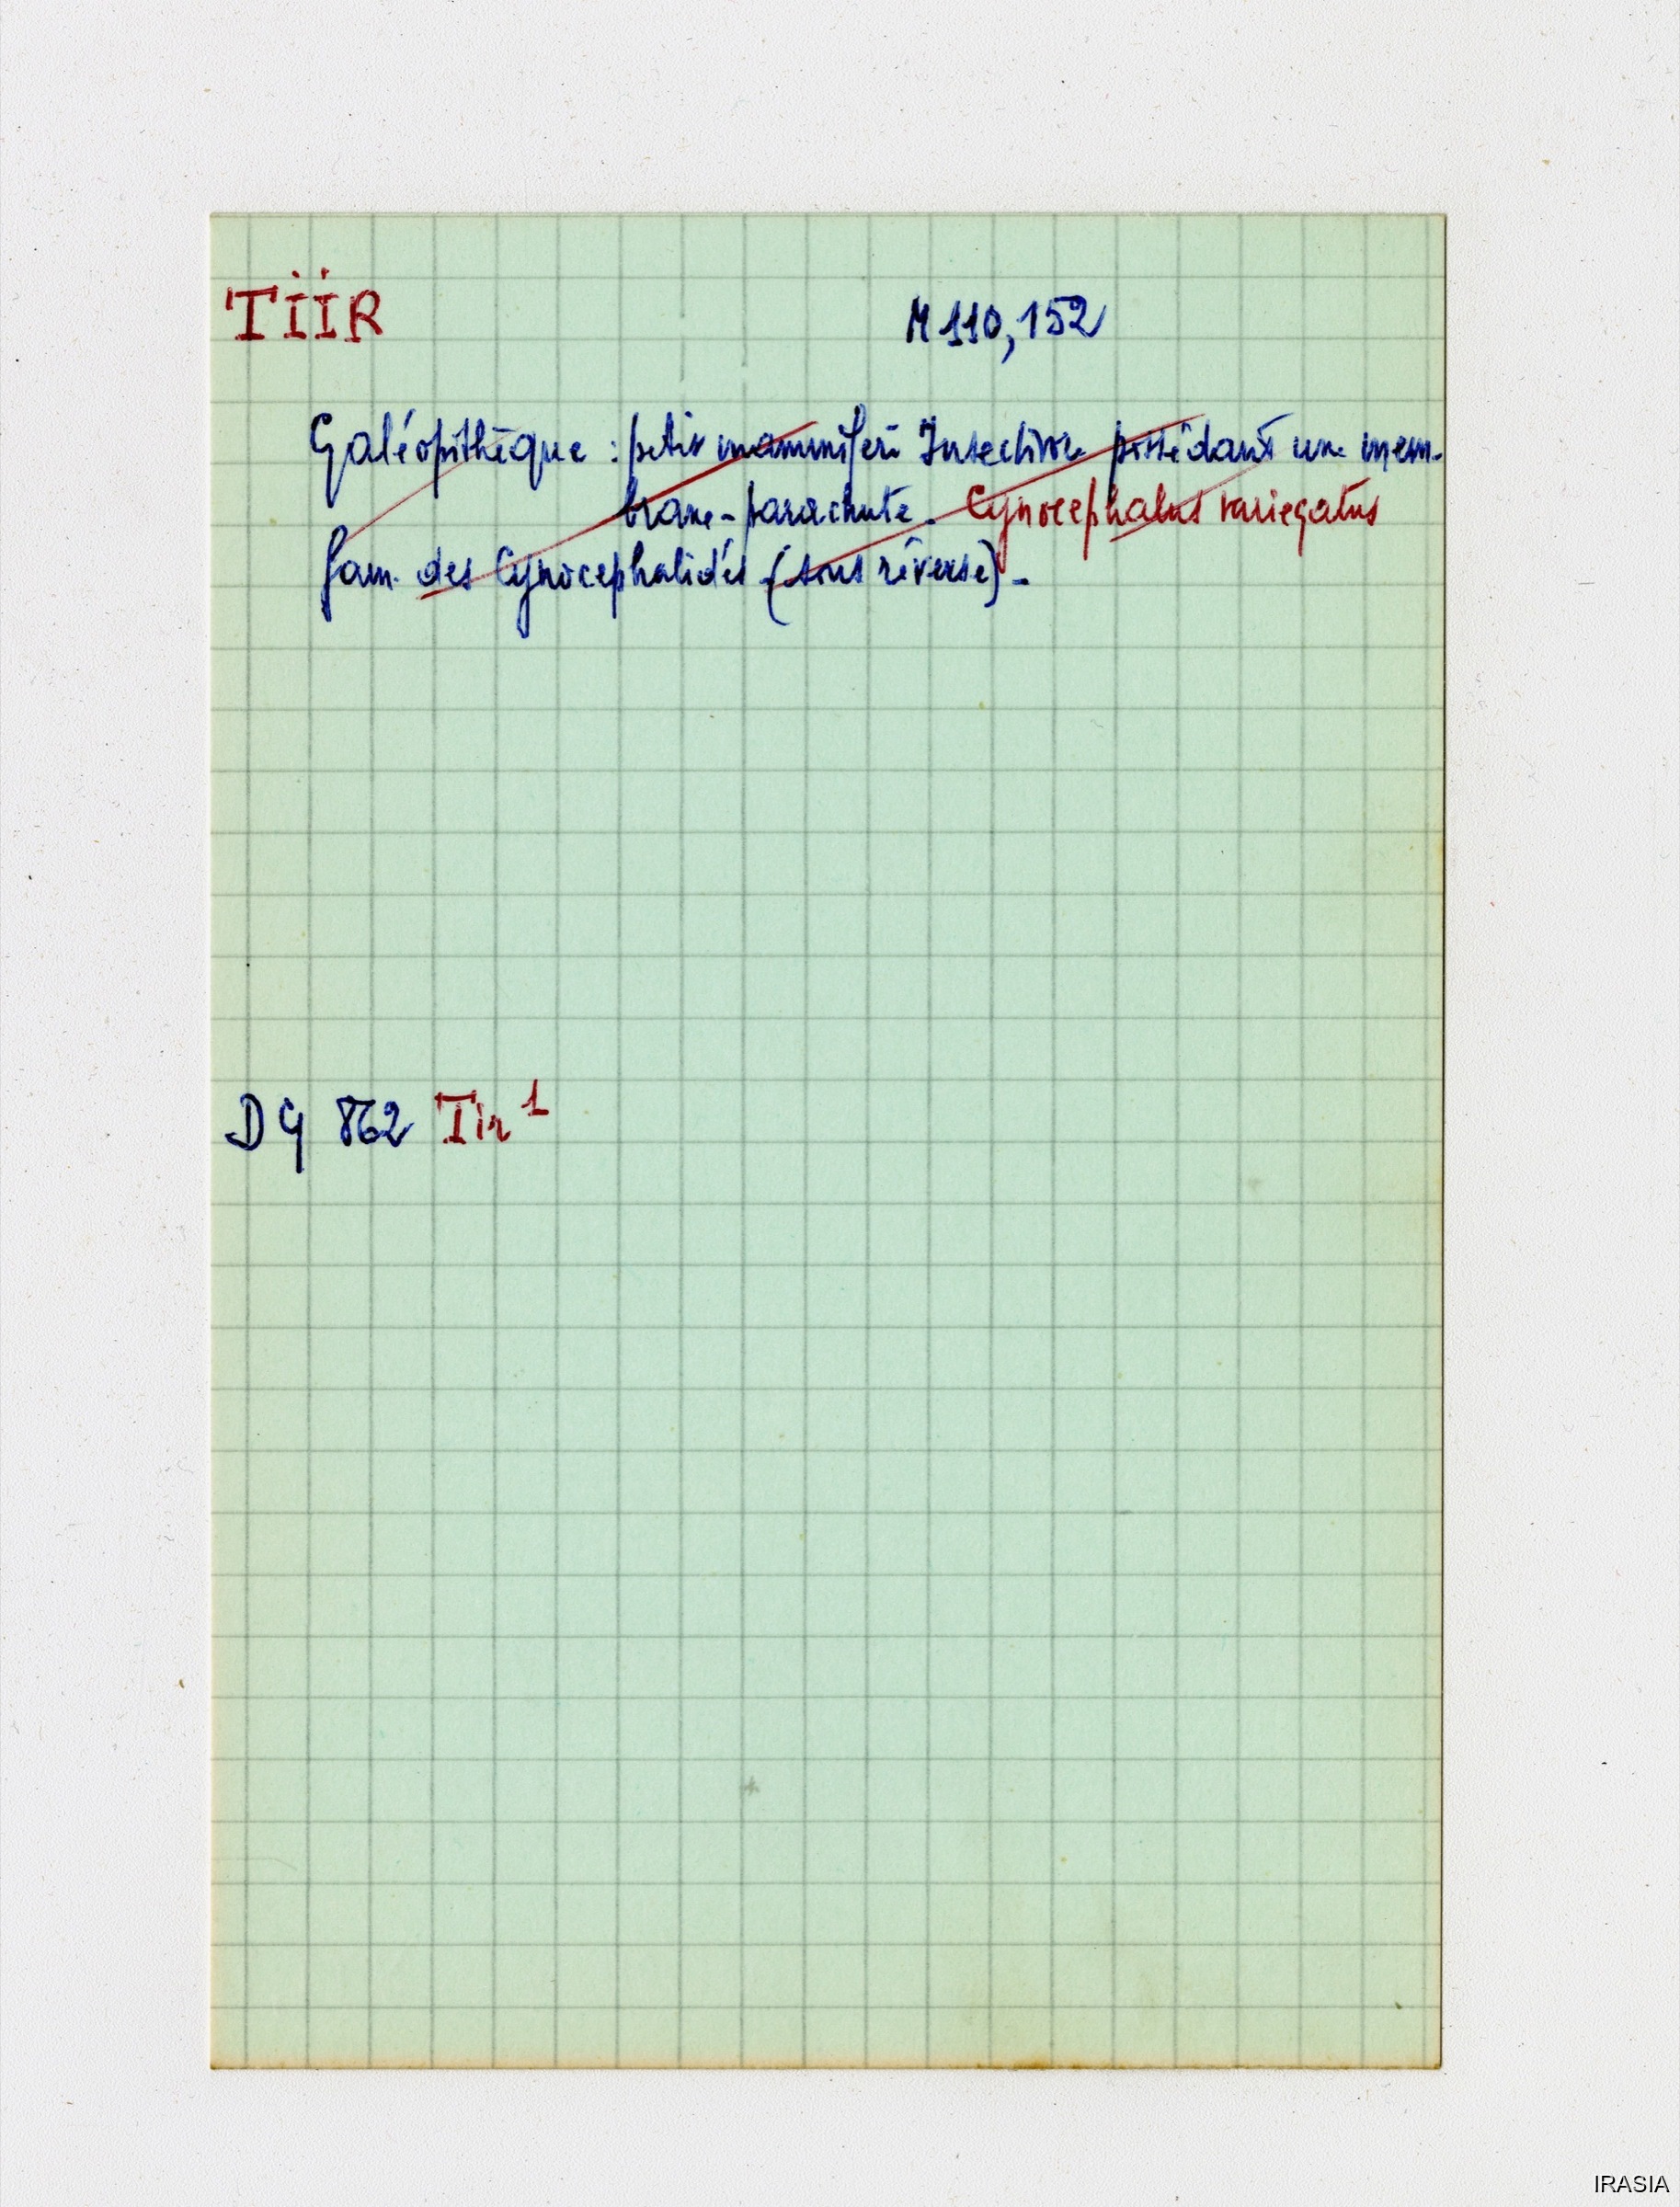 TIIR M 110,152
Galéopithèque : petit mammifère Insectivore possédant une mem-
brane-parachute. Cynocephalus variegatus
fam. des Cynocephalidés (sous réverse) -
DG 862 Tir 1
IRASIA